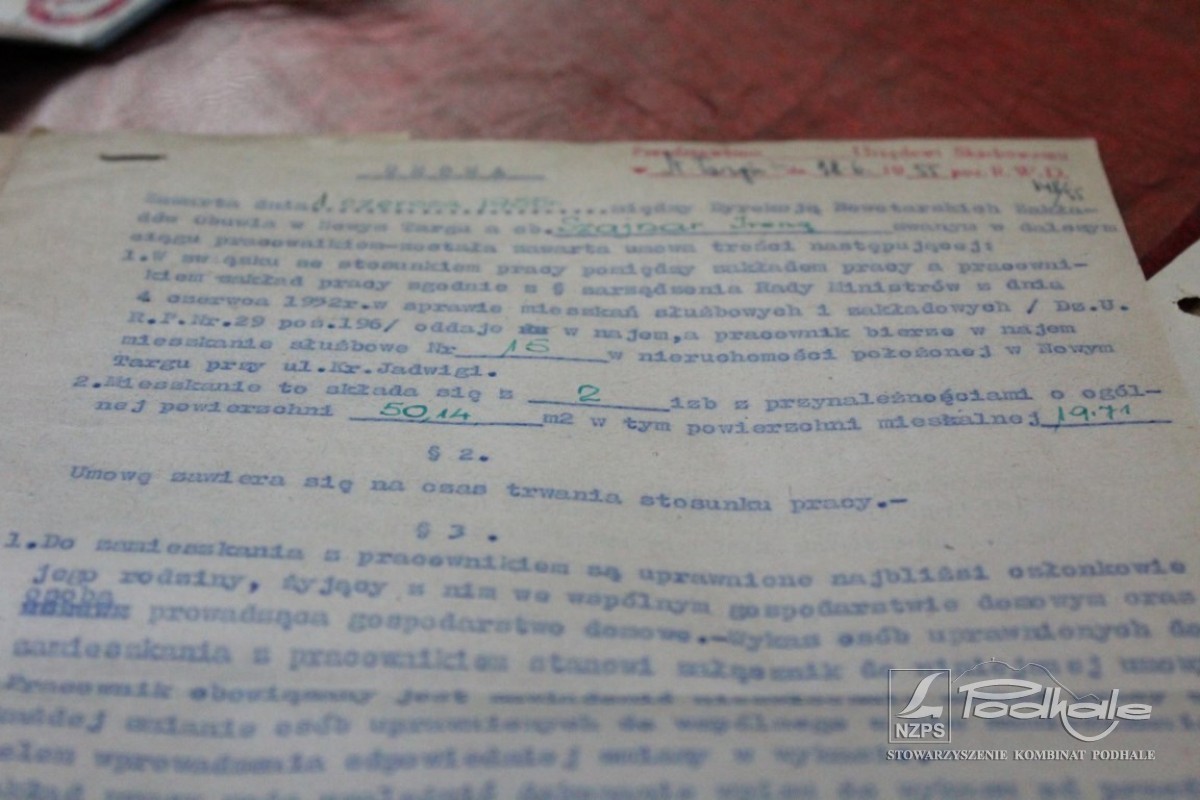 UMOWA
Urzędowi Skarbowemu
N Targu 19 55 poz. R.W.D.
Zawarta dnia 1 czerwca 1955r. między Dyrekcją Nowotarskich Zakła-
dów Obuwia w Nowym Targu a ob. Szajnar Ireną zwanym w dalszym
ciągu pracownikiem-została zawarta umowa treści następującej:
1.W związku ze stosunkiem pracy pomiędzy zakładem pracy a pracowni-
kiem zakład pracy zgodnie z § zarządzenia Rady Ministrów z dnia
4 czerwca 1952r.w sprawie mieszkań służbowych i zakładowych / Dz.U.
R.P.Nr.29 poz.196/ oddaje w najem,a pracownik bierze w najem
mieszkanie służbowe Nr 15 w nieruchomości położonej w Nowym
Targu przy ul.Kr.Jadwigi.
2.Mieszkanie to składa się z 2 izb z przynależnościami o ogól-
nej powierzchni 50,14 m2 w tym powierzchni mieszkalnej 19.71
§ 2.
Umowę zawiera się na czas trwania stosunku pracy.-
§ 3 .
1.Do zamieszkania z pracownikiem są uprawnione najbliżsi członkowie
jego rodziny, żyjący z nim we wspólnym gospodarstwie domowym oraz
osoba
prowadząca gospodarstwo domowe.-Wykaz osób uprawnionych do
zamieszkania z pracownikiem stanowi załącznik do niniejszej umowy
Pracownik obowiązany jest
każdej zmianie osób uprawnionych do wspólnego
celem wprowadzenia odpowiedniej zmiany w wykazie
NZPS Podhale
STOWARZYSZENIE KOMBINAT PODHALE